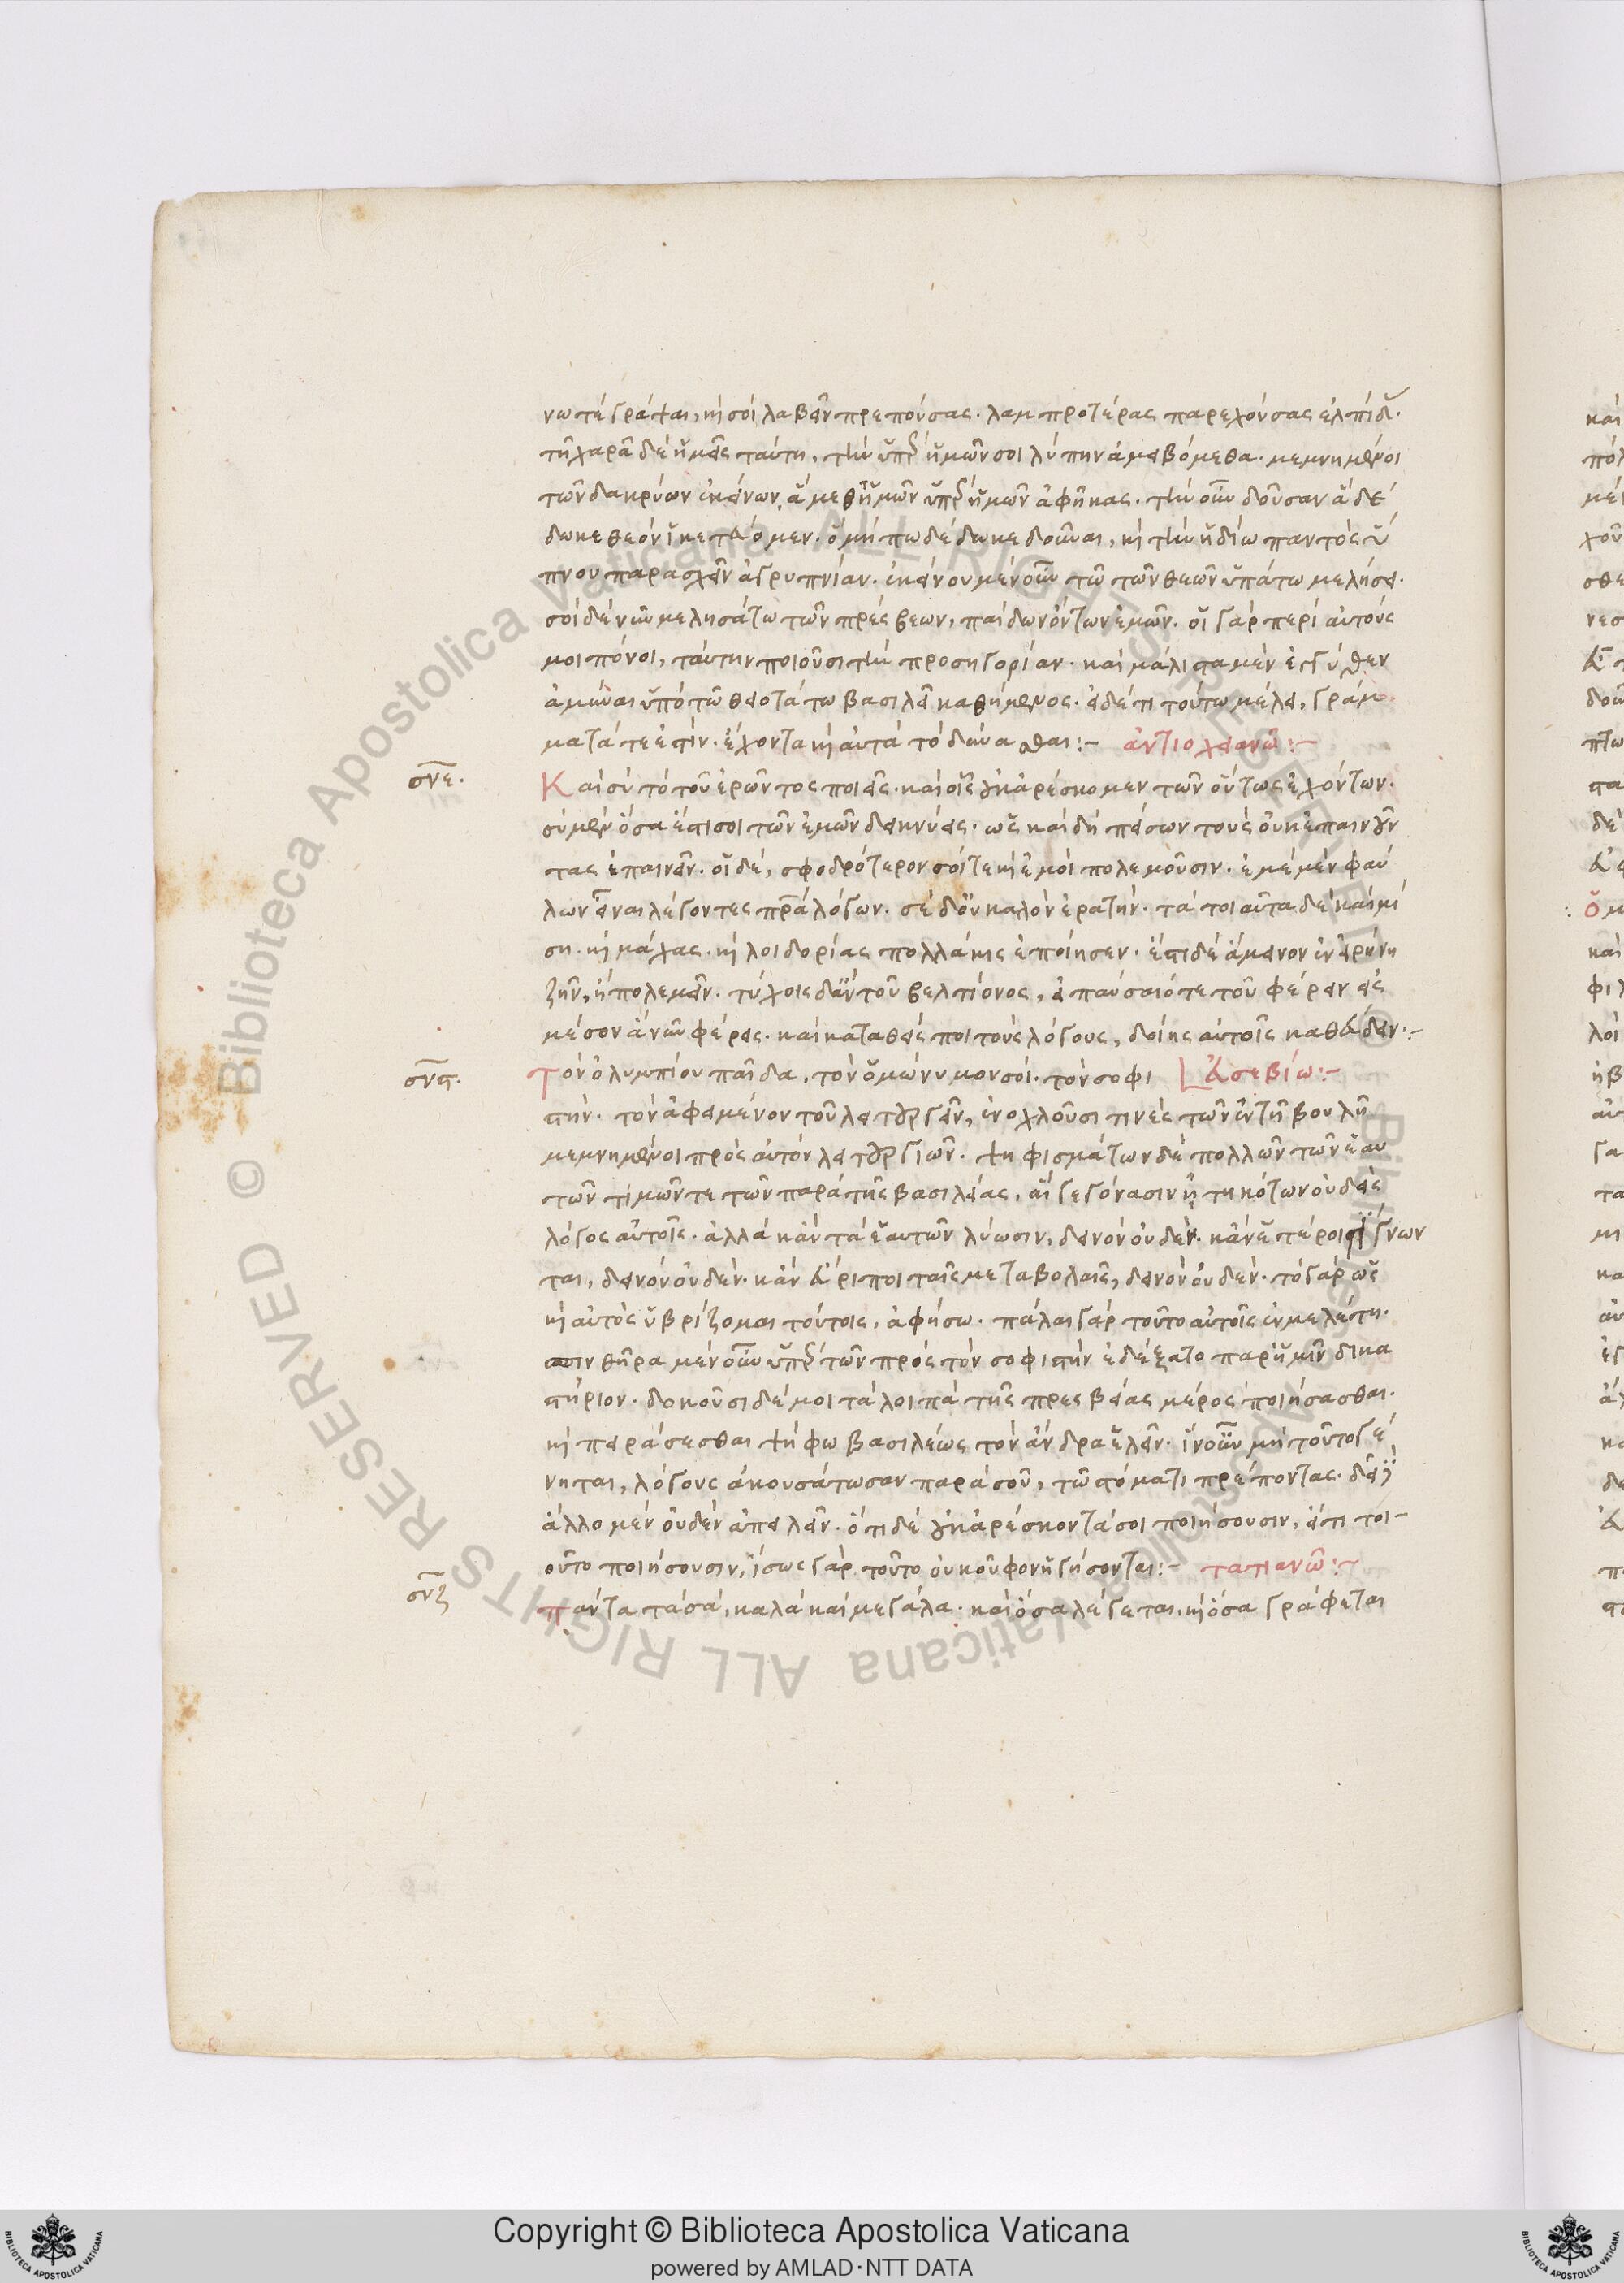 νω τέ γράψαι, καὶ σοὶ λαβεῖν πρεπούσας. λαμπροτέρας παρεχούσας ἐλπίδας.
τῆ χαρᾶ δὲ ἡμεῖς ταύτη, τὴν ὑπὲρ ἡμῶν σοι λύπην ἀμειβόμεθα. μεμνημένοι
τῶν δακρύων ἐκείνων, ἃ μεθ' ἡμῶν ὑπὲρ ἡμῶν ἀφῆκας. τὴν οὖν δοῦσαν ἃ δέ
δωκε θεὸν ἱκετεύομεν. ὃ μήπω δέδωκε δοῦναι, καὶ τὴν ἡδίω παντὸς ὕ
πνου παρασχεῖν ἀγρυπνίαν. ἐκείνου μὲν οὖν τῶ τῶν θεῶν ὑπάτω μελήσει.
σοὶ δὲ νῦν μελησάτω τῶν πρέσβεων, παίδων ὄντων ἐμῶν. οἱ γὰρ περὶ αὐτοὺς
μοι πόνοι, ταύτην ποιοῦσι τὴν προσηγορίαν. καὶ μάλιστα μὲν ἐγγύθεν
ἀμῦναι ὑπὸ τῶ θειοτάτω βασιλεῖ καθήμενος. εἰ δέ τι τούτω μέλει, γράμ
ματά τέ ἐστιν. ἔχοντα καὶ αὐτὰ τὸ δύνασθαι:- ἀντιοχειανῶ:-
σνε. Καὶ σὺ τὸ τοῦ ἐρῶντος ποιεῖς. καὶ οἷς οὐκ ἀρέσκομεν τῶν οὕτως ἐχόντων.
σὺ μὲν ὅσα ἔστι σοι τῶν ἐμῶν δεικνύεις. ὡς καὶ δὴ πείσων τοὺς οὐκ ἐπαινοῦν
τας ἐπαινεῖν. οἱ δὲ, σφοδρότερον σοί τε καὶ ἐμοὶ πολεμοῦσιν. ἐμὲ μὲν φαύ
λων εἶναι λέγοντες πατέρα λόγων. σὲ δ' οὐ καλὸν ἐραστήν. τὰ τοιαῦτα δὲ καὶ μί
ση. καὶ μάχας. καὶ λοιδορίας πολλάκις ἐποίησεν. ἔστι δὲ ἄμεινον ἐν εἰρήνη
ζῆν, ἢ πολεμεῖν. τύχοις δ' ἂν τοῦ βελτίονος, εἰ παύσαιό τε τοῦ φέρειν εἰς
μέσον ἃ νῦν φέρεις. καὶ καταθείς ποι τοὺς λόγους, δοίης αὐτοῖς καθεύδειν:-
σνϛ. Τὸν ὀλυμπίου παῖδα, τὸν ὁμώνυμον σοί. τὸν σοφι εὐσεβίω:-
στήν. τὸν ἀφειμένον τοῦ λειτουργεῖν, ἐνοχλοῦσι τινὲς τῶν ἐν τῆ βουλῆ
μεμνημένοι πρὸς αὐτὸν λειτουργιῶν. ψηφισμάτων δὲ πολλῶν τῶν ἑαυ
τῶν τιμῶν τε τῶν παρὰ τῆς βασιλείας, αἳ γεγόνασιν ἡττηκότων οὐδεὶς
λόγος αὐτοῖς. ἀλλὰ κἂν τὰ ἑαυτῶν λύωσιν, δεινὸν οὐδὲν. κἂν ἕτεροι γίγνων
ται, δεινὸν οὐδὲν. κἂν εὔριποι ταῖς μεταβολαῖς, δεινὸν οὐδὲν. τὸ γὰρ ὡς
καὶ αὐτὸς ὑβρίζομαι τούτοις, ἀφήσω. πάλαι γὰρ τοῦτο αὐτοῖς ἐν μελέτη.
θῆρα μὲν οὖν ὑπὲρ τῶν πρὸς τὸν σοφιστὴν ἐδέξατο παρ' ἡμῖν δικα
στήριον. δοκοῦσι δέ μοι τὰ λοιπὰ τῆς πρεσβείας μέρος ποιήσασθαι.
καὶ πειράσεσθαι ψήφω βασιλέως τὸν ἄνδρα ἑλεῖν. ἵν' οὖν μὴ τοῦτο γέ
νηται, λόγους ἀκουσάτωσαν παρὰ σοῦ, τῶ στόματι πρέποντας. δεῖ
ἄλλο μὲν οὐδὲν ἀπειλεῖν. ὅτι δὲ οὐκ ἀρέσκοντά σοι ποιήσουσιν, εἴ τι τοι-
οῦτο ποιήσουσιν, ἴσως γὰρ τοῦτο οὐ κοῦφον ἡγήσονται:- τατιανῶ:-
σνζ Πάντα τὰ σὰ, καλὰ καὶ μεγάλα. καὶ ὅσα λέγεται, καὶ ὅσα γράφεται
Copyright © Biblioteca Apostolica Vaticana
powered by AMLAD·NTT DATA
© Biblioteca Apostolica Vaticana ALL RIGHTS RESERVED